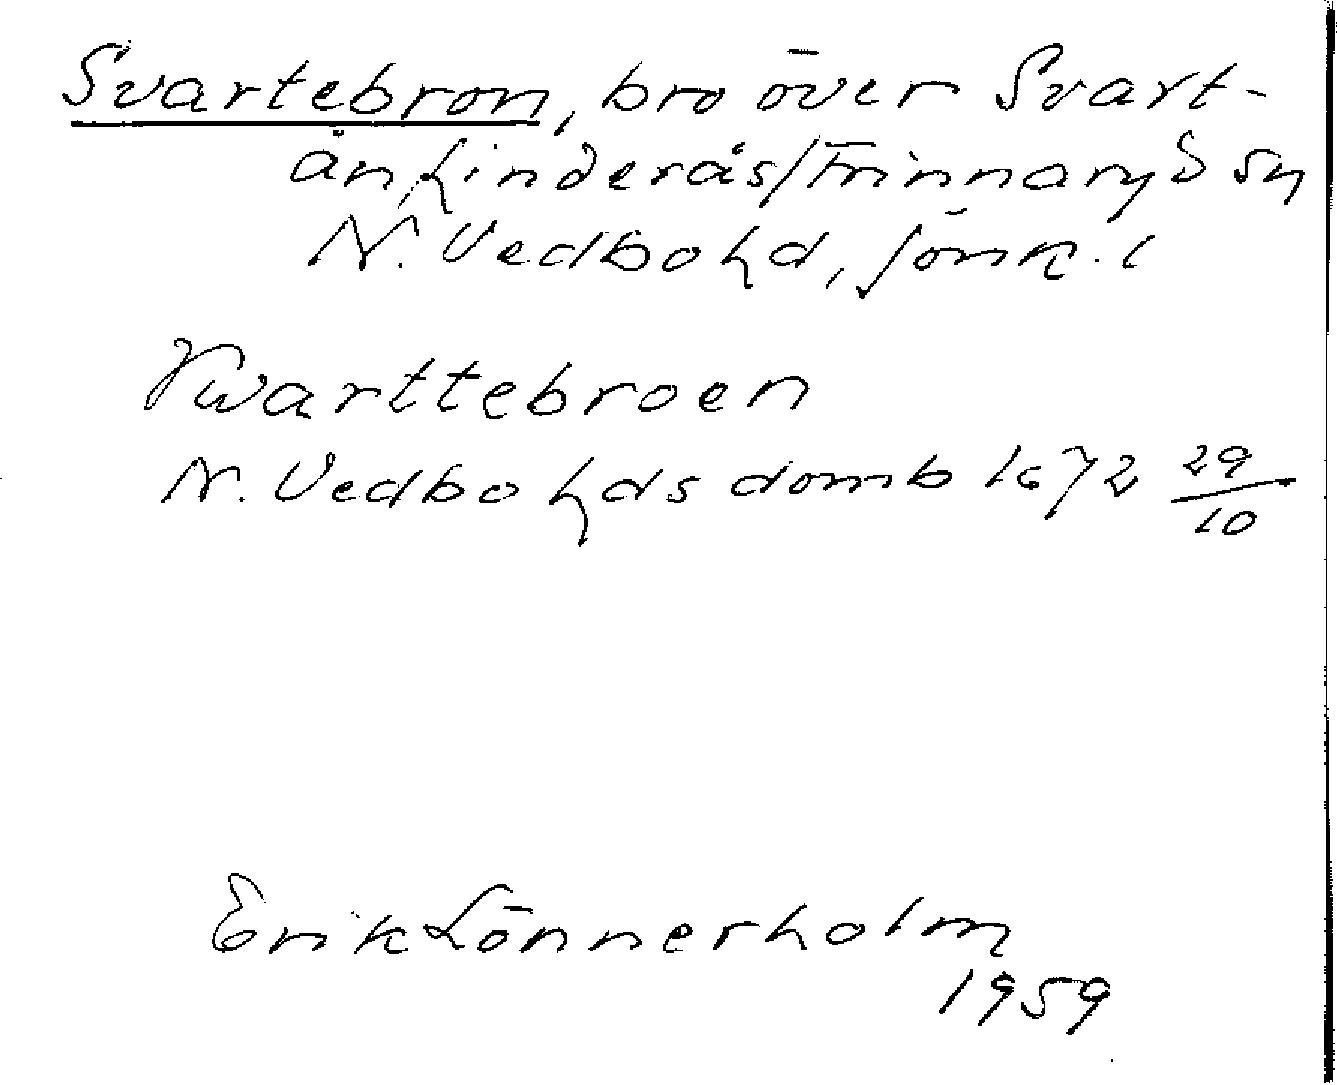 Svartebron, bro över Svart-
ån, Linderås/Frinnaryd sn
N. Vedbo hd, Jönk. l
Swarttebroen
N. Vedbo hds domb 1672 29/10
Erik Lönnerholm
1959